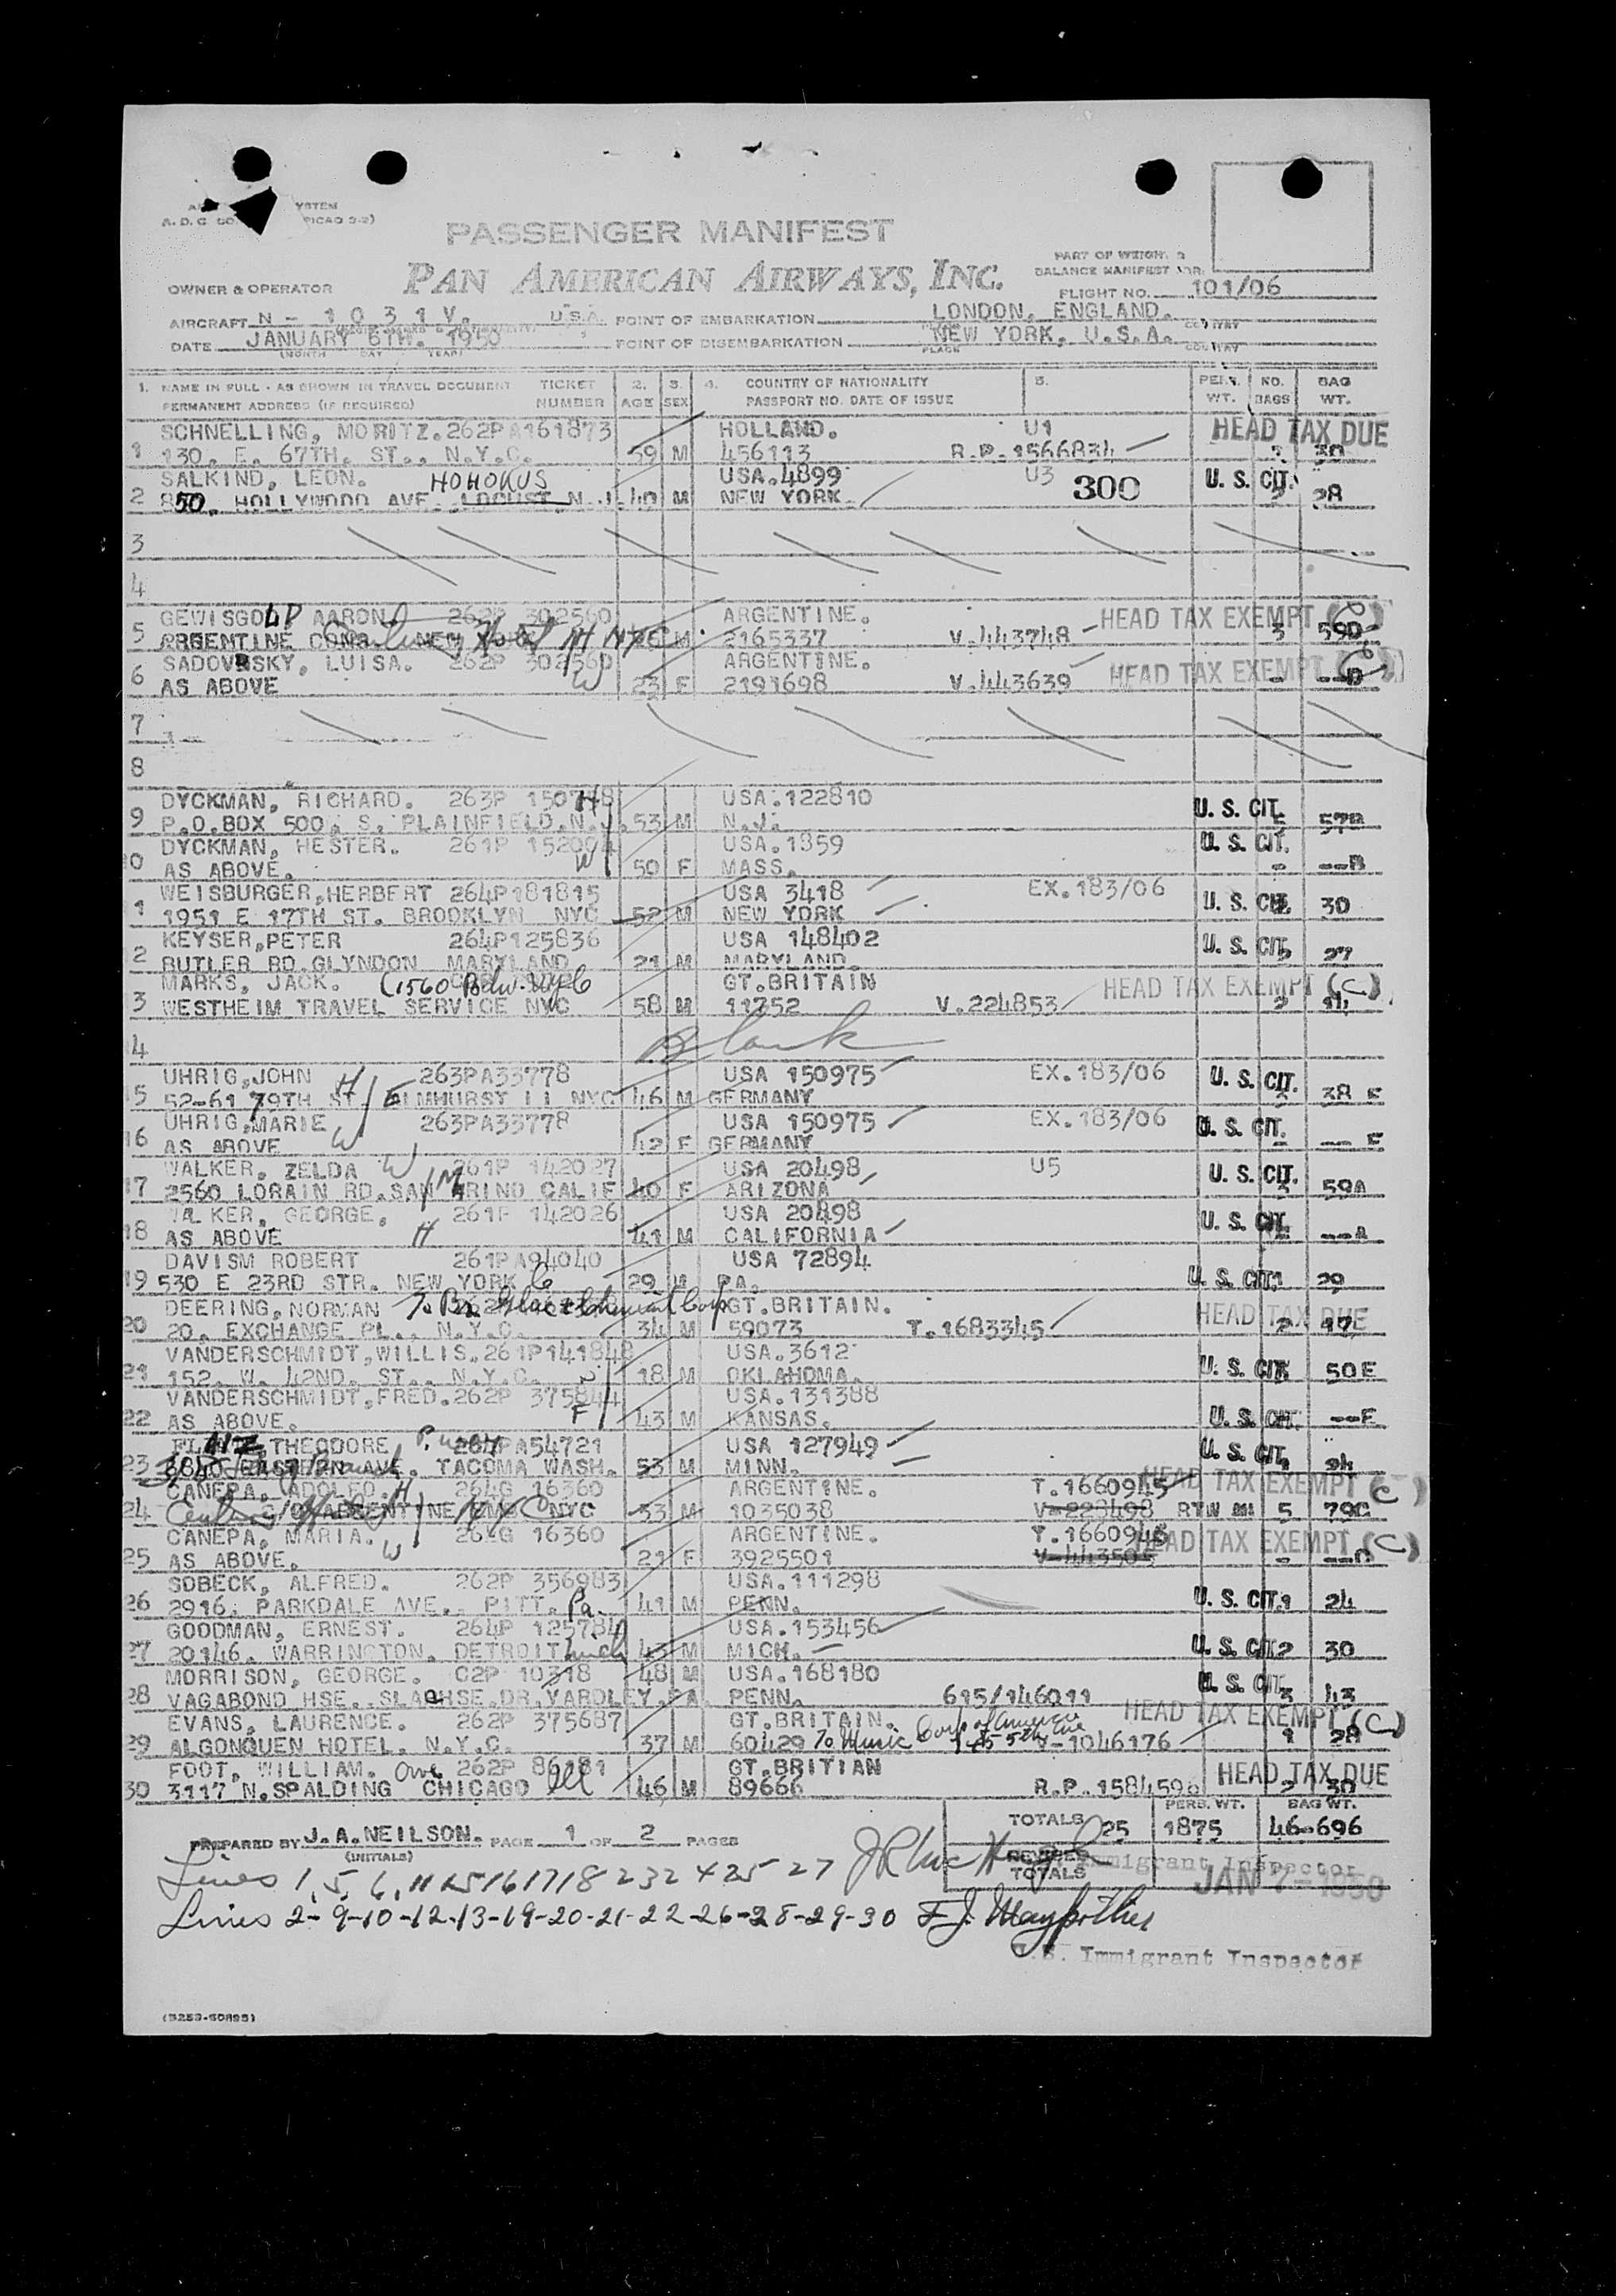 YSTEM
A. D. C. (ICAO 9-2)
PASSENGER MANIFEST
PAN AMERICAN AIRWAYS, INC.
PART OF WEIGHT &
BALANCE MANIFEST FOR
OWNER & OPERATOR
FLIGHT NO. 101/06
AIRCRAFT N - 1 0 3 1 V. U.S.A. POINT OF EMBARKATION LONDON, ENGLAND.
DATE JANUARY 6TH. 1950 POINT OF DISEMBARKATION NEW YORK, U.S.A.
(MONTH DAY YEAR) PLACE COUNTRY
1. NAME IN FULL - AS SHOWN IN TRAVEL DOCUMENT TICKET 2. 3. 4. COUNTRY OF NATIONALITY 5. PERS. NO. BAG
PERMANENT ADDRESS (IF REQUIRED) NUMBER AGE SEX PASSPORT NO. DATE OF ISSUE WT. BAGS WT.
SCHNELLING, MORITZ. 262PA161873 HOLLAND. U1 HEAD TAX DUE
1 130. E. 67TH. ST., N.Y.C. 59 M 456113 R.P.1566834 30
SALKIND, LEON. HOHOKUS USA.4899 U3 300 U. S. CIT.
2 850. HOLLYWOOD AVE. LOCUST N.J. 40 M NEW YORK. 2 28
3
4
GEWISGOLD AARON 262P 302560 ARGENTINE. HEAD TAX EXEMPT (C)
5 ARGENTINE CONS. NEW YORK M 2165337 V.443748 3 59D
SADOVNSKY, LUISA. 262P 302560 ARGENTINE. HEAD TAX EXEMPT (C)
6 AS ABOVE W 23 F 2191698 V.443639 - --D
7
8
DYCKMAN, RICHARD. 263P H USA.122810 U. S. CIT.
9 P.O.BOX 500. S. PLAINFIELD.N.J. 53 M N.J. 57B
DYCKMAN, HESTER. 261P 152094 USA.1359 U. S. CIT.
0 AS ABOVE. W 50 F MASS. - --B
WEISBURGER,HERBERT 264P181815 USA 3418 EX.183/06 U. S. CIT.
1 1951 E 17TH ST. BROOKLYN NYC 52 M NEW YORK 30
KEYSER,PETER 264P125836 USA 148402 U. S. CIT.
2 BUTLER RD.GLYNDON MARYLAND 21 M MARYLAND. 27
MARKS, JACK. (1560 Bdw. NYC GT.BRITAIN HEAD TAX EXEMPT (C)
3 WESTHEIM TRAVEL SERVICE NYC 58 M 11752 V.224853 2
4 Blank
UHRIG,JOHN H 263PA33778 USA 150975 EX.183/06 U. S. CIT.
15 52-61 79TH ST. ELMHURST LI NYC 46 M GERMANY 38 F
UHRIG,MARIE 263PA33778 USA 150975 EX.183/06 U. S. CIT.
16 AS ABOVE W 42 F GERMANY - -- F
WALKER, ZELDA W 261P 142027 USA 20498 U5 U. S. CIT.
17 2560 LORAIN RD.SAN MARINO CALIF 40 F ARIZONA 59A
WALKER, GEORGE. 261P 142026 USA 20498 U. S. CIT.
18 AS ABOVE H 41 M CALIFORNIA --A
DAVISM ROBERT 261PA94040 USA 72894
19 530 E 23RD STR. NEW YORK C 29 M PA. U. S. CIT. 1 29
DEERING, NORMAN GT.BRITAIN. HEAD TAX DUE
20 20. EXCHANGE PL., N.Y.C. 34 M 59073 T.1683345 2 17
VANDERSCHMIDT,WILLIS.261P141848 USA.3612
21 152. W. 42ND. ST., N.Y.C. 18 M OKLAHOMA. U. S. CIT. 50E
VANDERSCHMIDT,FRED.262P 375844 USA.131388
22 AS ABOVE. F 43 M KANSAS. U. S. CIT. --E
THEODORE 264PA54721 USA 127949 U. S. CIT.
23 EASTERN AVE. TACOMA WASH. 53 M MINN.
CANEPA, ADOLFO. H 264G 16360 ARGENTINE. T.1660945 HEAD TAX EXEMPT (C)
24 ARGENTINE NYC 33 M 1035038 V-223498 5 79C
CANEPA, MARIA. 264G 16360 ARGENTINE. HEAD TAX EXEMPT (C)
25 AS ABOVE. W 21 F 3925501 -
SOBECK, ALFRED. 262P 356983 USA.111298
26 2916. PARKDALE AVE., PITT. Pa. 41 M PENN. U. S. CIT. 1 24
GOODMAN, ERNEST. 264P USA.153456
27 20146. WARRINGTON. DETROIT Mich 43 M MICH. U. S. CIT. 2 30
MORRISON, GEORGE. C2P 10318 48 M USA.168180 U. S. CIT.
28 VAGABOND HSE. DR.YARDLEY.PA. PENN. 615/146011 3 43
EVANS, LAURENCE. 262P 375687 GT.BRITAIN. Corp of America HEAD TAX EXEMPT (C)
29 ALGONQUEN HOTEL. N.Y.C. 37 M 60429 To Music 745 5th Ave V-1046176 1 28
FOOT, WILLIAM. Ave 262P 86181 GT.BRITIAN HEAD TAX DUE
30 3117 N.SPALDING CHICAGO Ill 46 M 89666 R.P.1584598 2 30
TOTALS 25 PERS. WT. 1875 BAG WT. 46-696
PREPARED BY J.A.NEILSON. PAGE 1 OF 2 PAGES
(INITIALS)
REVISED TOTALS Immigrant Inspector
JAN 7-1950
Lines 1, 5, 6, 11 15 16 17 18 23 24 25 27
Lines 2-9-10-12-13-19-20-21-22-26-28-29-30 F.J. Maypother
U.S. Immigrant Inspector